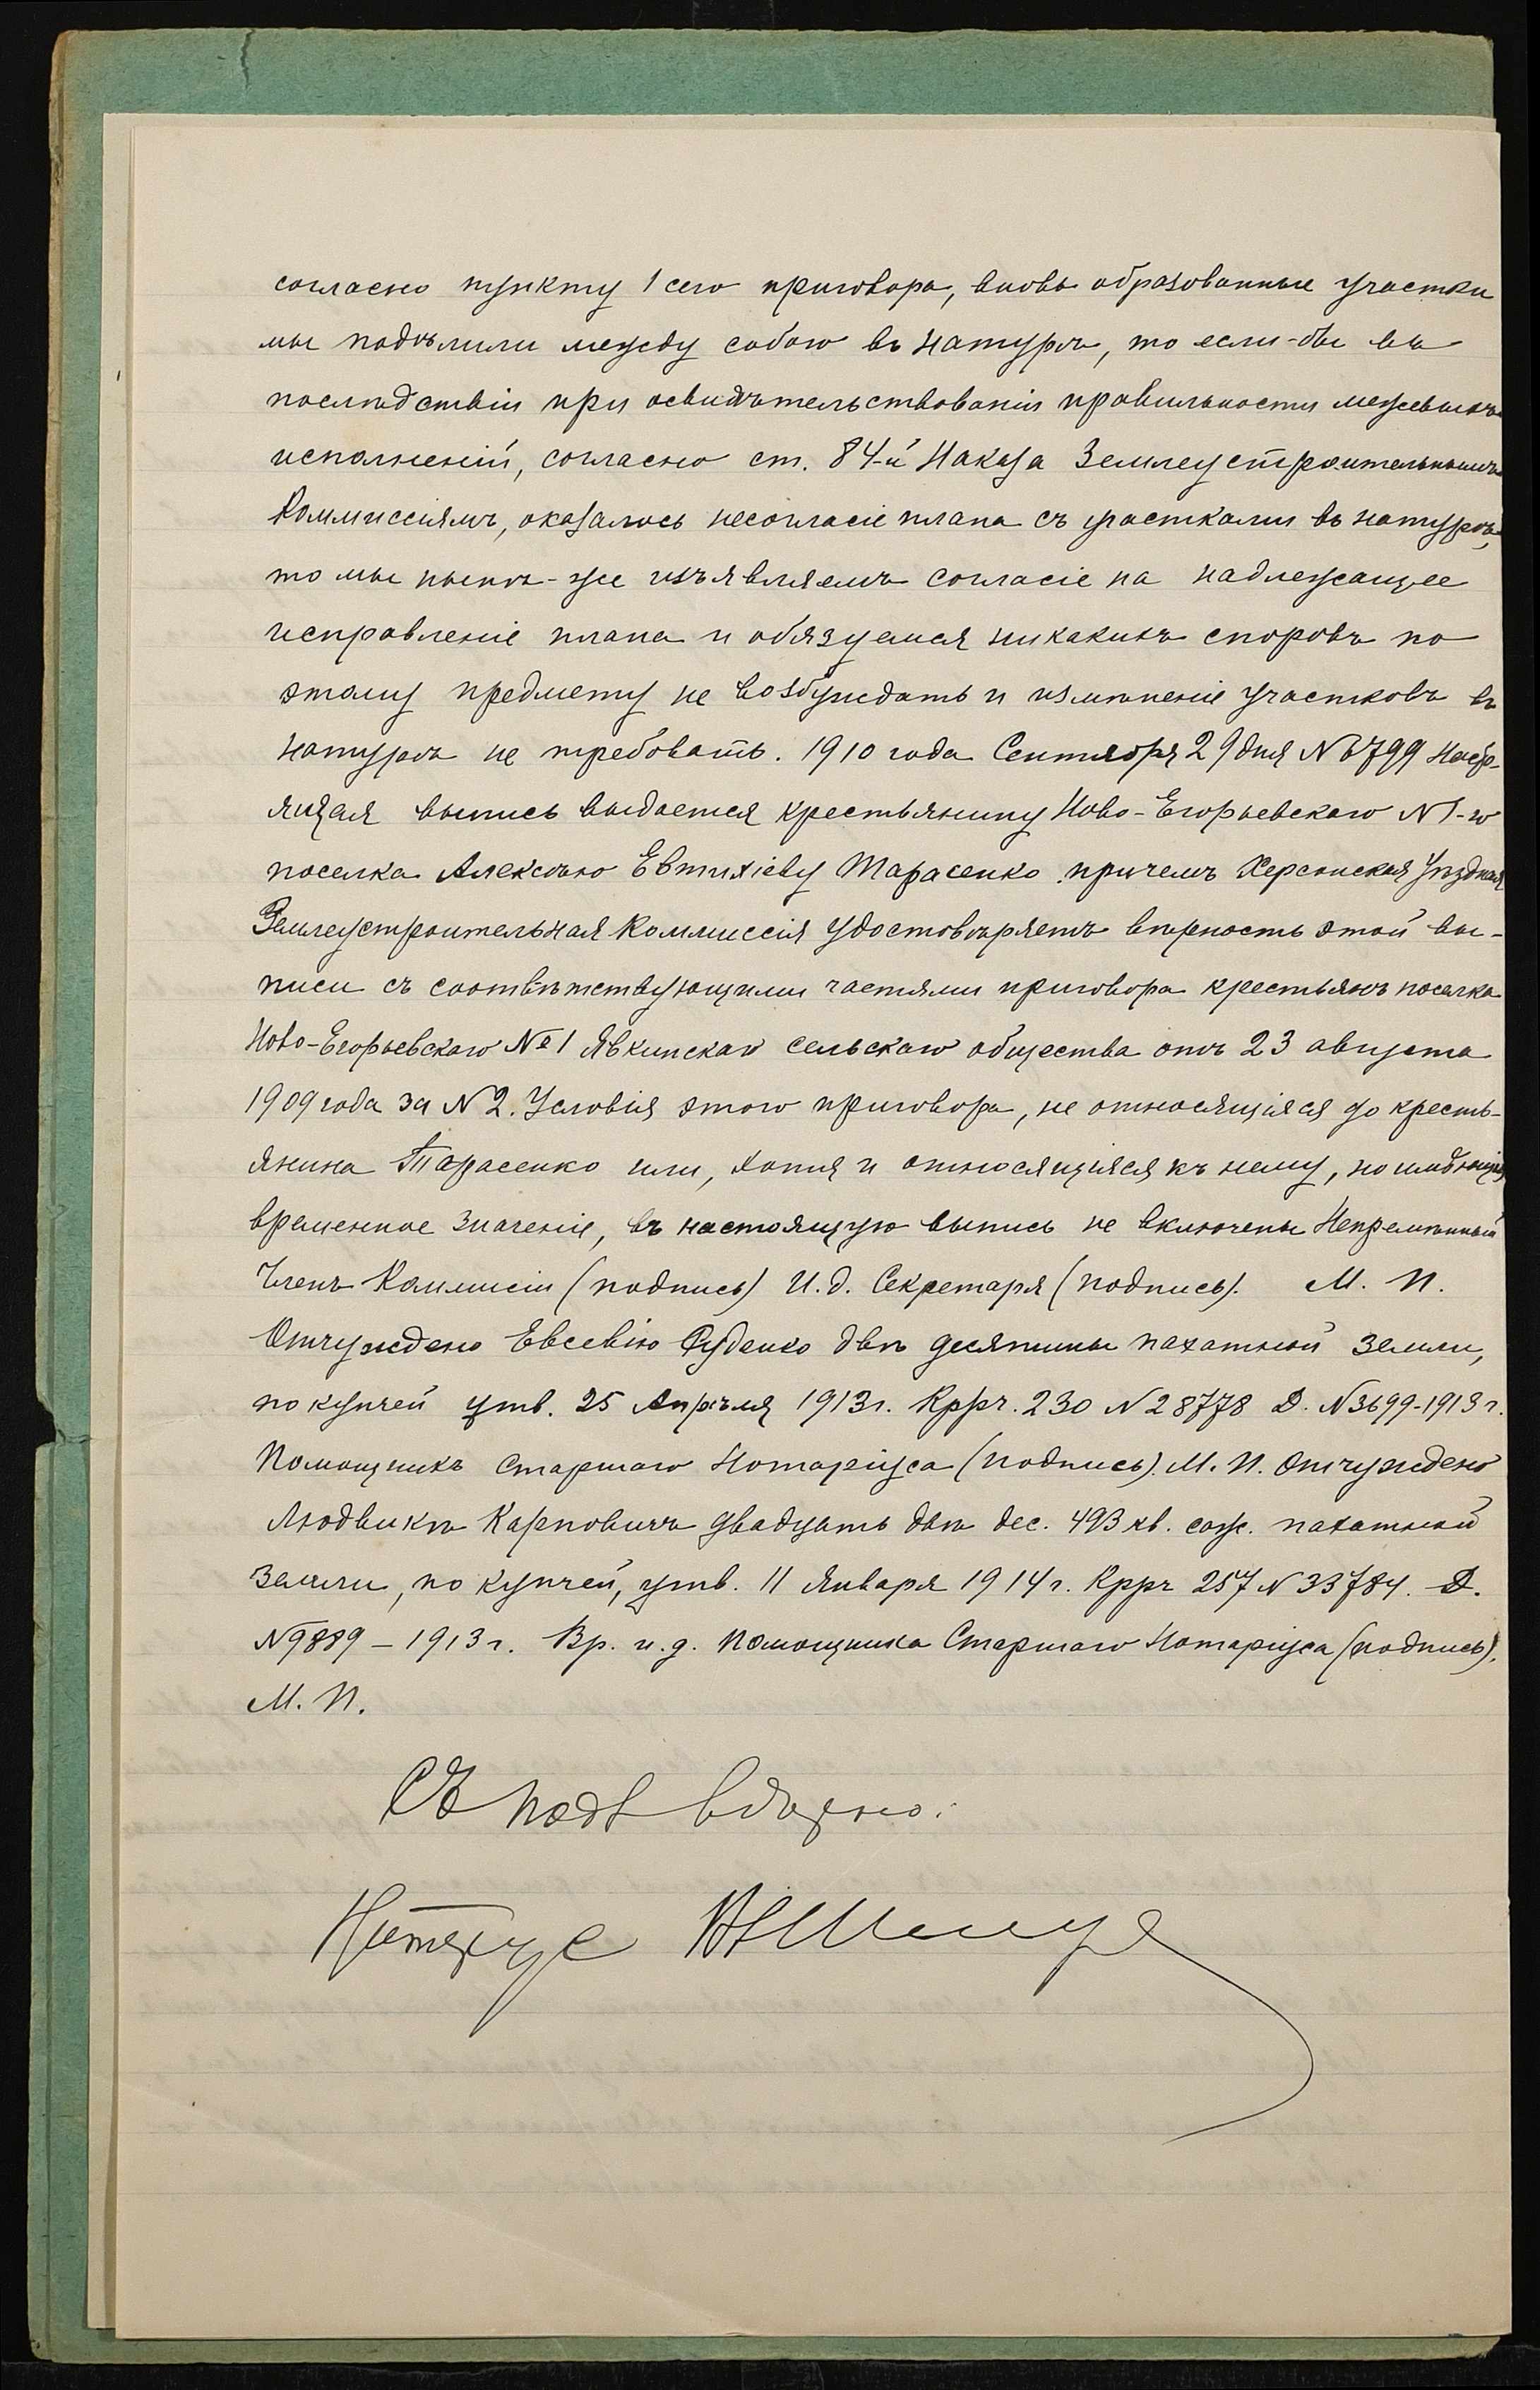 согласно пункту 1 сего приговора, вновь образованные участки
мы подѣлили между собою въ натурѣ, то если-бы въ
послѣдствіи при освидѣтельствованіи правильности межевыхъ
исполненій, согласно ст. 84-й Наказа Землеустроительнымъ
Коммиссіямъ, оказалось несогласіе плана съ участками въ натурѣ,
то мы нынѣ-же изъявляемъ согласіе на надлежащее
исправленіе плана и обязуемся никакихъ споровъ по
этому предмету не возбуждать и измѣненіе участковъ въ
натурѣ не требовать. 1910 года Сентября 29 дня №6799 Насто-
ящая выпись выдается крестьянину Ново-Егорьевскаго №1-го
поселка Алексѣю Евтихіеву Тарасенко причемъ Херсонская Уѣздная
Землеустроительная Коммиссія удостовѣряетъ вѣрность этой вы-
писи съ соотвѣтствующими частями приговора крестьянъ поселка
Ново-Егорьевскаго №1 Явкинскаго сельскаго общества отъ 23 августа
1909 года за №2. Условія этого приговора, не относящіяся до кресть-
янина Тарасенко или, хотя и относящіяся къ нему, но имѣющія
временное значеніе, въ настоящую выпись не включены Непремѣнный
Членъ Коммисіи (подпись) И.д. Секретаря (подпись). М. П.
Отчуждено Евсевію Руденко двѣ десятины пахатной земли,
по купчей утв. 25 Апрѣля 1913 г. Кррч. 230 №28778 Д. №3699-1913 г.
Помощникъ Старшаго Нотаріуса (подпись). М. П. Отчуждено
Людвикѣ Карповичъ двадцать двѣ дес. 493 кв. саж. пахатной
земли, по купчей, утв. 11 Января 1914 г. Кррч 257 №33784. Д.
№9889 – 1913 г. Вр. и. д. помощника Старшаго Нотаріуса (подпись).
М. П.
Съ подл вѣрно:
Нотаріус